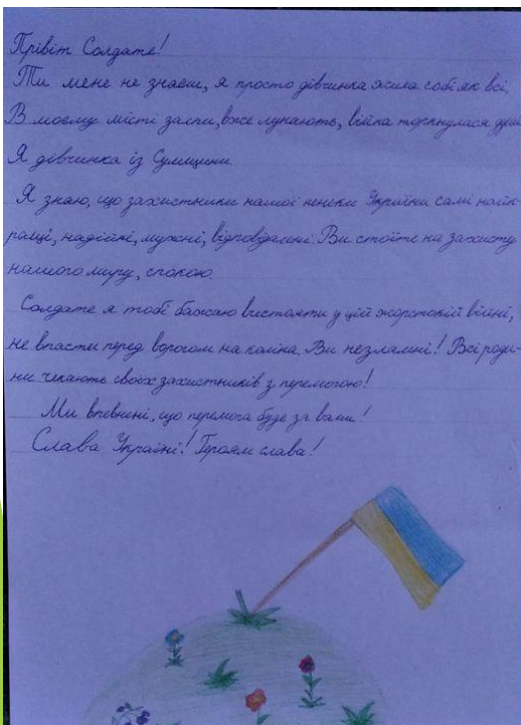 Прівіт Солдате!
Ти мене не знаєш, я просто дівчинка жила собі як всі,
В моєму місті залпи, вже лунають, війна торкнулася душ
Я дівчинка із Сумщини.
Я знаю, що захистники нашої неньки України самі найк-
ращі, надійні, мужні, відповідальні. Ви стоїте на захисту
нашого миру, спокою.
Солдате я тобі бажаю вистояти у цій жорстокій війні,
не впасти перед ворогом на коліна. Ви незламні! Всі роди-
ни чекають своєх захистників з перемогою!
Ми впевнені, що перемога буде за вами!
Слава Україні! Героям слава!